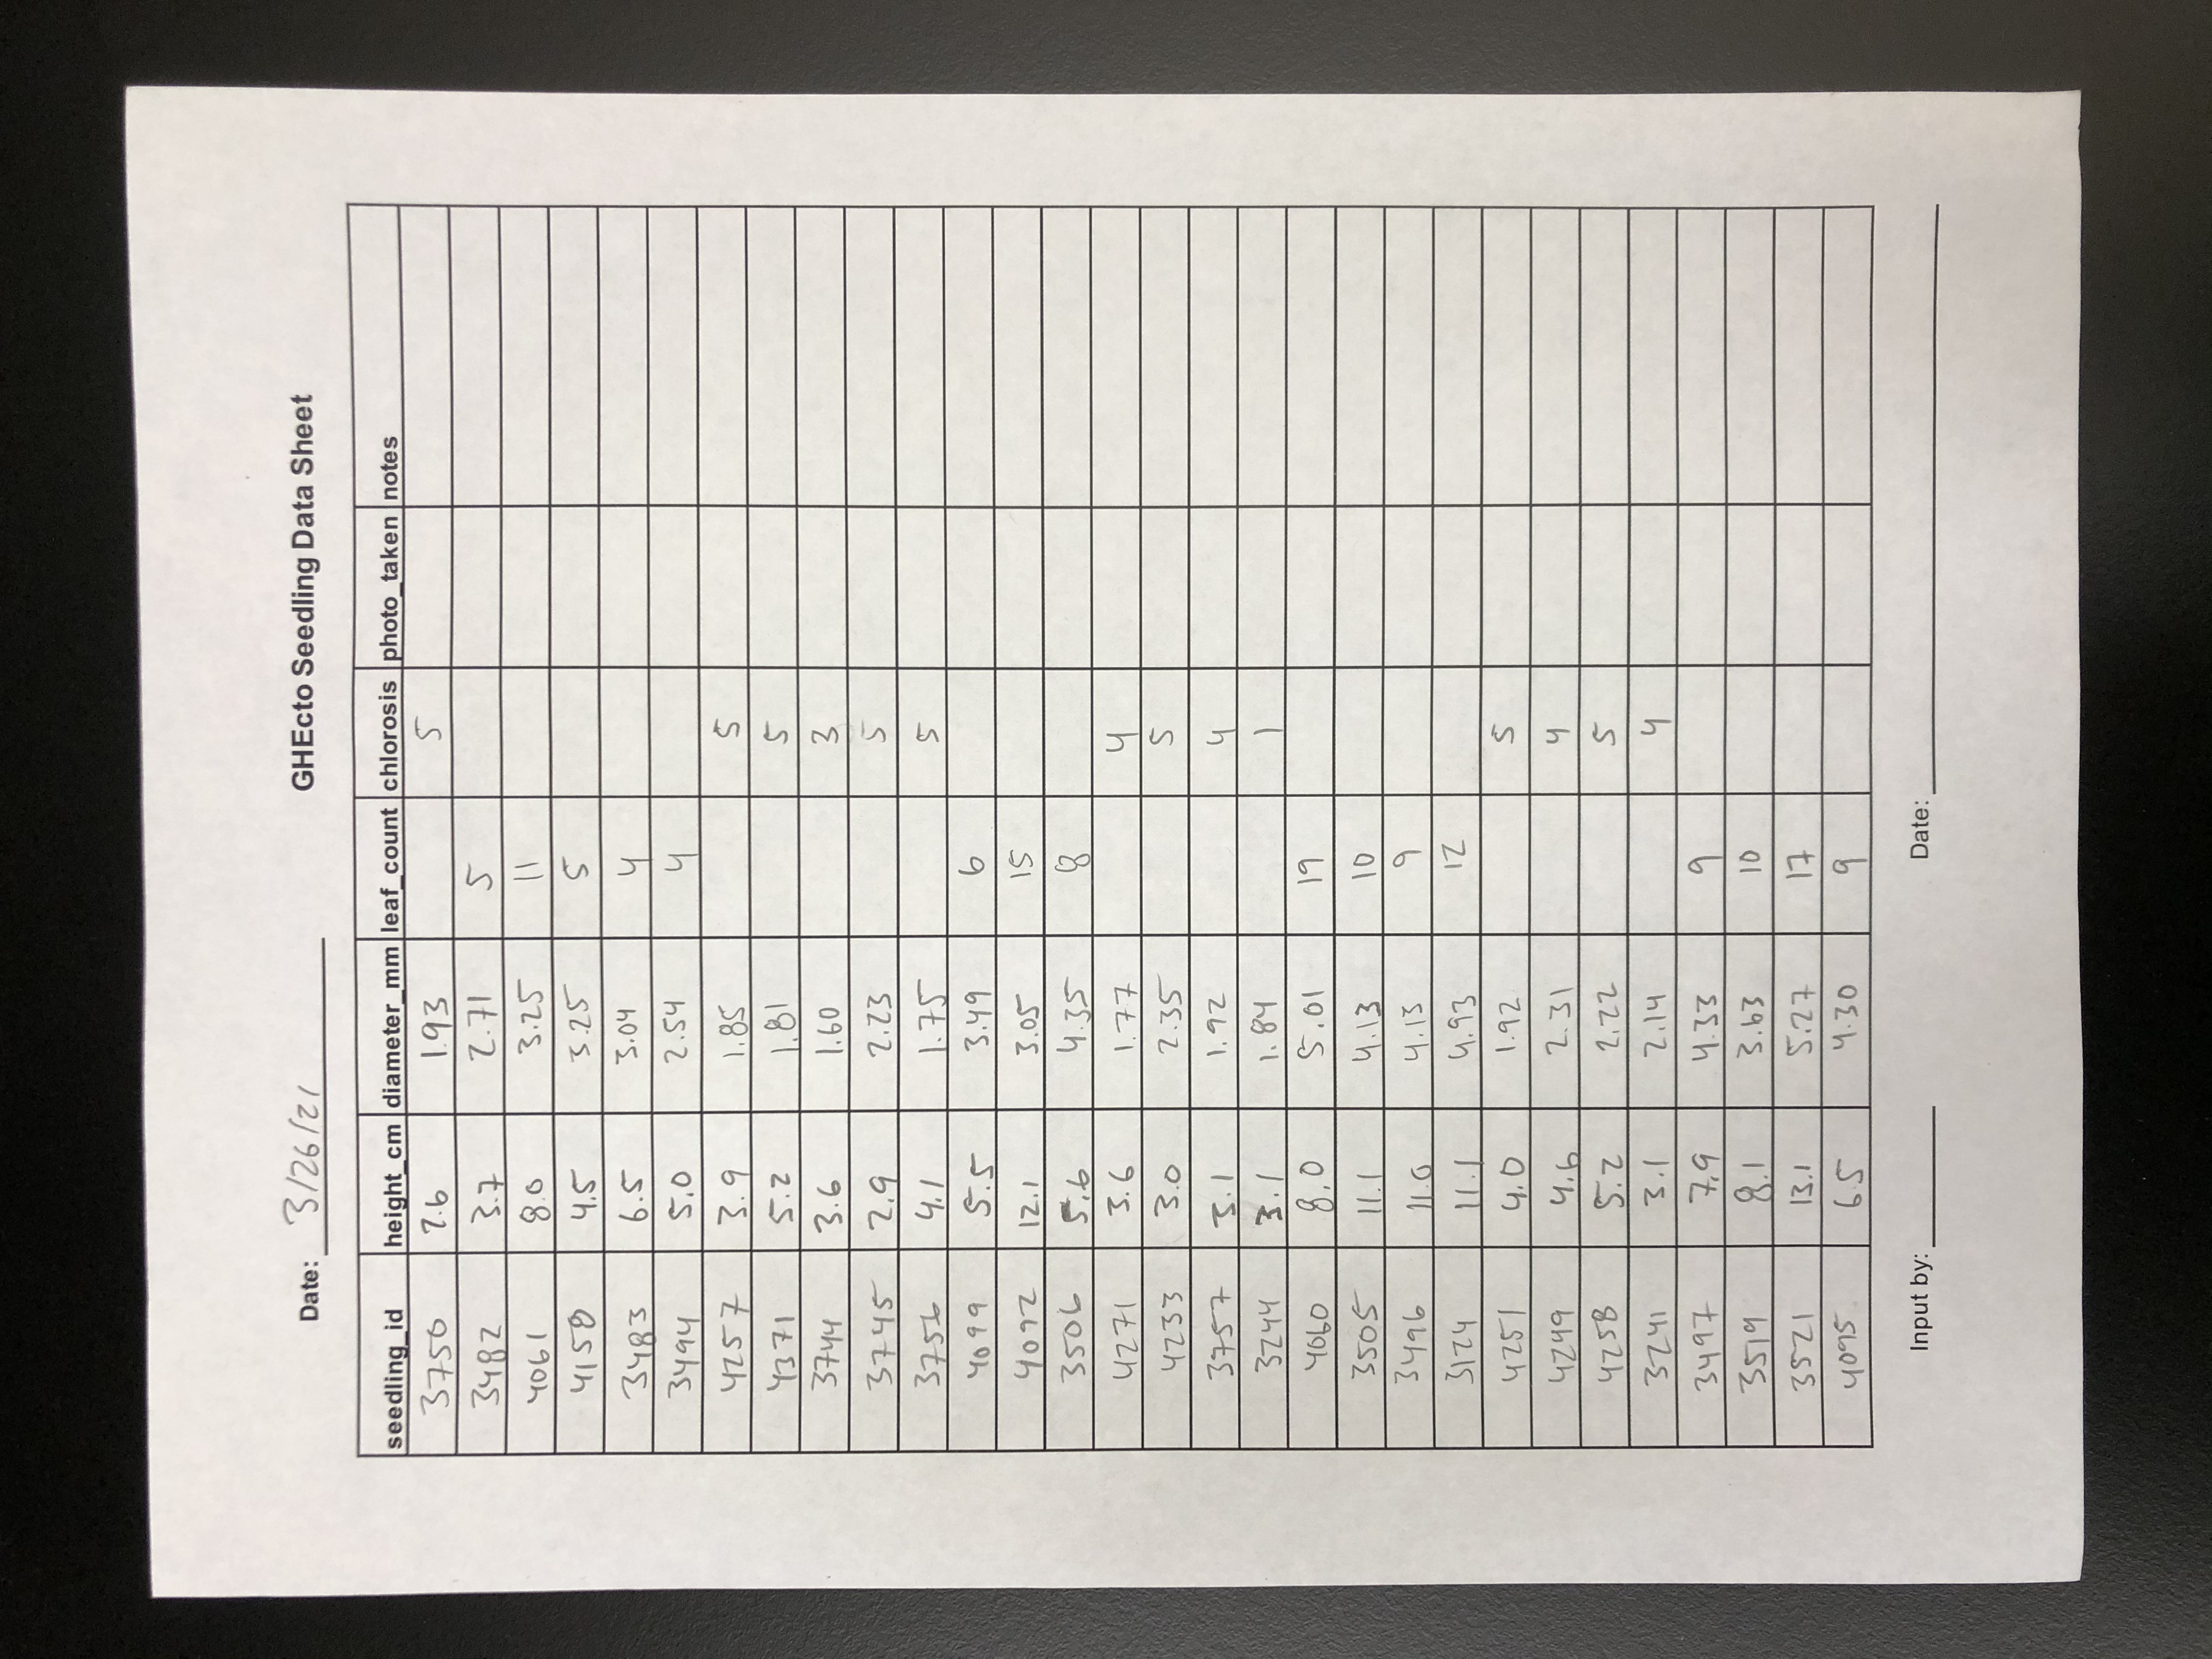 Date: 3/26/21 GHEcto Seedling Data Sheet
seedling_id height_cm diameter_mm leaf_count chlorosis photo_taken notes
3750 2.6 1.93 5
3482 3.7 2.71 5
4061 8.0 3.25 11
4158 4.5 3.25 5
3483 6.5 3.04 4
3494 5.0 2.54 4
4257 3.9 1.85 5
4371 5.2 1.81 5
3744 3.6 1.60 3
3745 2.9 2.23 5
3756 4.1 1.75 5
4099 5.5 3.49 6
4092 12.1 3.05 15
3506 5.6 4.35 8
4271 3.6 1.77 4
4233 3.0 2.35 5
3757 3.1 1.92 4
3244 3.1 1.84 1
4060 8.0 5.01 19
3505 11.1 4.13 10
3496 11.0 4.13 9
3124 11.1 4.93 12
4251 4.0 1.92 5
4249 4.6 2.31 4
4258 5.2 2.22 5
3241 3.1 2.14 4
3497 7.9 4.33 9
3519 8.1 3.63 10
3521 13.1 5.27 17
4095 6.5 4.30 9
Input by: Date: